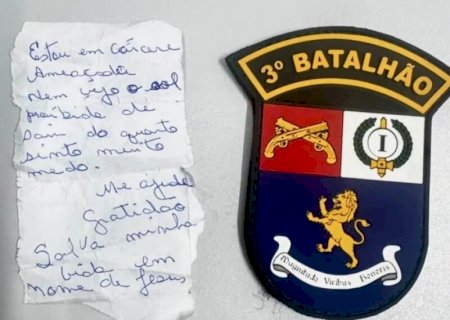 Estou em cárcere
Ameaçada
Nem vejo o sol
proibida de
sair do quarto
sinto muito
medo.
Me ajuda
gratidão
Salva minha
vida em
nome de Jesus
3º BATALHÃO
I
Magnitudo Viribus Honoris